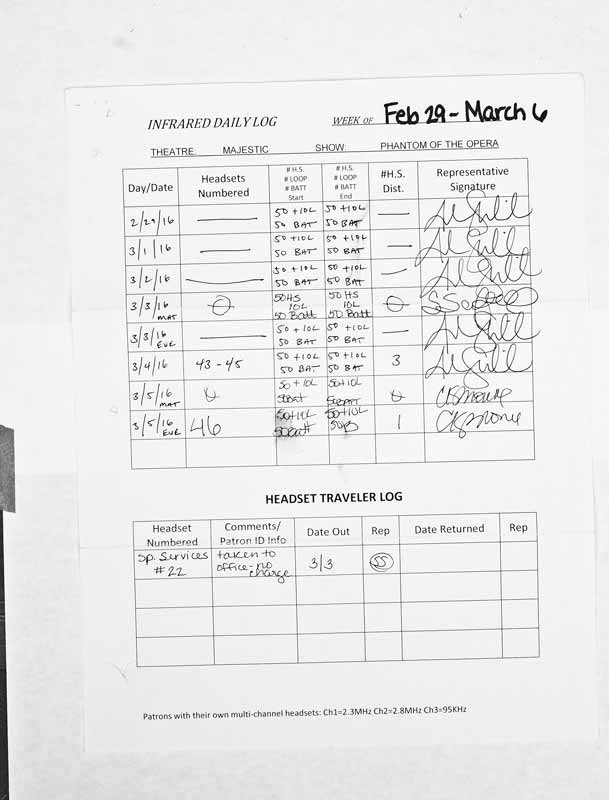 INFRARED DAILY LOG WEEK OF Feb 29 - March 6
THEATRE: MAJESTIC SHOW: PHANTOM OF THE OPERA
Day/Date Headsets Numbered # H.S. # LOOP # BATT Start # H.S. # LOOP # BATT End #H.S. Dist. Representative Signature
2/29/16 — 50 + 10L 50 BAT 50 + 10L 50 BAT —
3/1/16 — 50 + 10L 50 BAT 50 + 10L 50 BAT —
3/2/16 — 50 + 10L 50 BAT 50 + 10L 50 BAT —
3/3/16 MAT 50HS 10L 50 Batt 50 HS 10L 50 Batt
3/3/16 EVE — 50 + 10L 50 BAT 50 + 10L 50 BAT —
3/4/16 43 - 45 50 + 10L 50 BAT 50 + 10L 50 BAT 3
3/5/16 MAT 50 + 10L 50BAT 50+10L 50BATT
3/5/16 EVE 46 50+10L 50Batt 50+10L 50B 1
HEADSET TRAVELER LOG
Headset Numbered Comments/ Patron ID Info Date Out Rep Date Returned Rep
Sp. Services #22 taken to office-no charge 3/3 SS
Patrons with their own multi-channel headsets: Ch1=2.3MHz Ch2=2.8MHz Ch3=95KHz